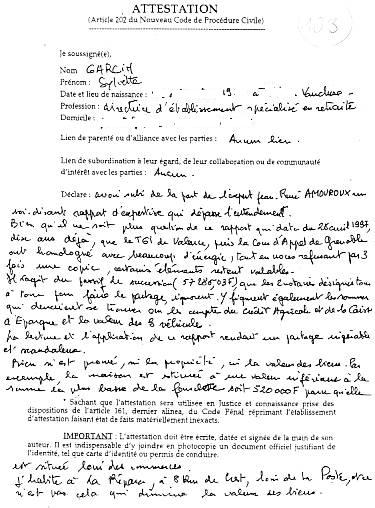 ATTESTATION
(Article 202 du Nouveau Code de Procédure Civile)
103
Je soussigné(e),
Nom GARCIN
Prénom : Sylvette
Date et lieu de naissance : 19 à Vaucluse
Profession : directrice d'établissement spécialisé en retraite
Domicile :
Lien de parenté ou d'alliance avec les parties : Aucun lien.
Lien de subordination à leur égard, de leur collaboration ou de communauté
d'intérêt avec les parties : Aucun.
Déclare : avoir subi de la part de l'expert feu René AMOUROUX un
soi-disant rapport d'expertise qui dépasse l'entendement.
Bien qu'il ne soit plus question de ce rapport qui date du 28 avril 1997,
dix ans déjà, que le TGI de Valence, puis la Cour d'Appel de Grenoble
ont homologué avec beaucoup d'énergie, tout en nous refusant par 3
fois une copie, certains éléments restent valables.
Il s'agit du passif de succession que les 2 notaires désignés tour
à tour pour faire le partage, ignorent. Y figurent également les sommes
qui devraient se trouver sur le compte du Crédit Agricole et de la Caisse
d'Epargne et la valeur des 8 véhicules.
La lecture et l'application de ce rapport rendait un partage
et scandaleux.
Rien n'est prouvé, ni la propriété, ni la valeur des biens. Par
exemple la maison est estimée à une valeur inférieure à la
somme la plus basse de la fourchette soit 520000F parce qu'elle
* Sachant que l'attestation sera utilisée en Justice et connaissance prise des
dispositions de l'article 161, dernier alinea, du Code Pénal réprimant l'établissement
d'attestation faisant état de faits matériellement inexacts.
IMPORTANT : L'attestation doit être écrite, datée et signée de la main de son
auteur. Il est indispensable d'y joindre en photocopie un document officiel justifiant de
l'identité, tel que carte d'identité ou permis de conduire.
est située loin des commerces.
J'habite à La Répara, à 8 km de Crest, loin de la Poste, et ce
n'est pas cela qui diminue la valeur des biens.